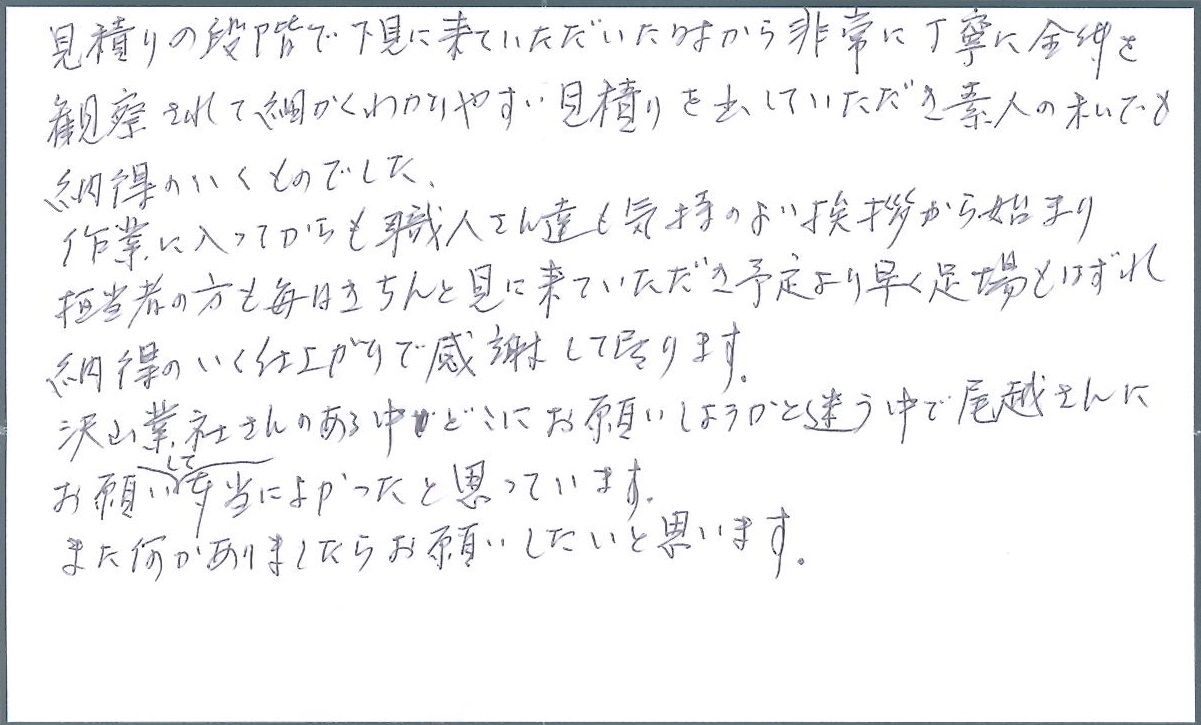 見積りの段階で下見に来ていただいた時から非常に丁寧に全体を
観察されて細かくわかりやすい見積りを出していただき素人の私でも
納得のいくものでした。
作業に入ってからも職人さん達も気持のよい挨拶から始まり
担当者の方も毎日きちんと見に来ていただき予定より早く足場もはずれ
納得のいく仕上がりで感謝して居ります。
沢山業社さんのある中でどこにお願いしようかと迷う中で尾越さんに
お願いして本当によかったと思っています。
また何かありましたらお願いしたいと思います。